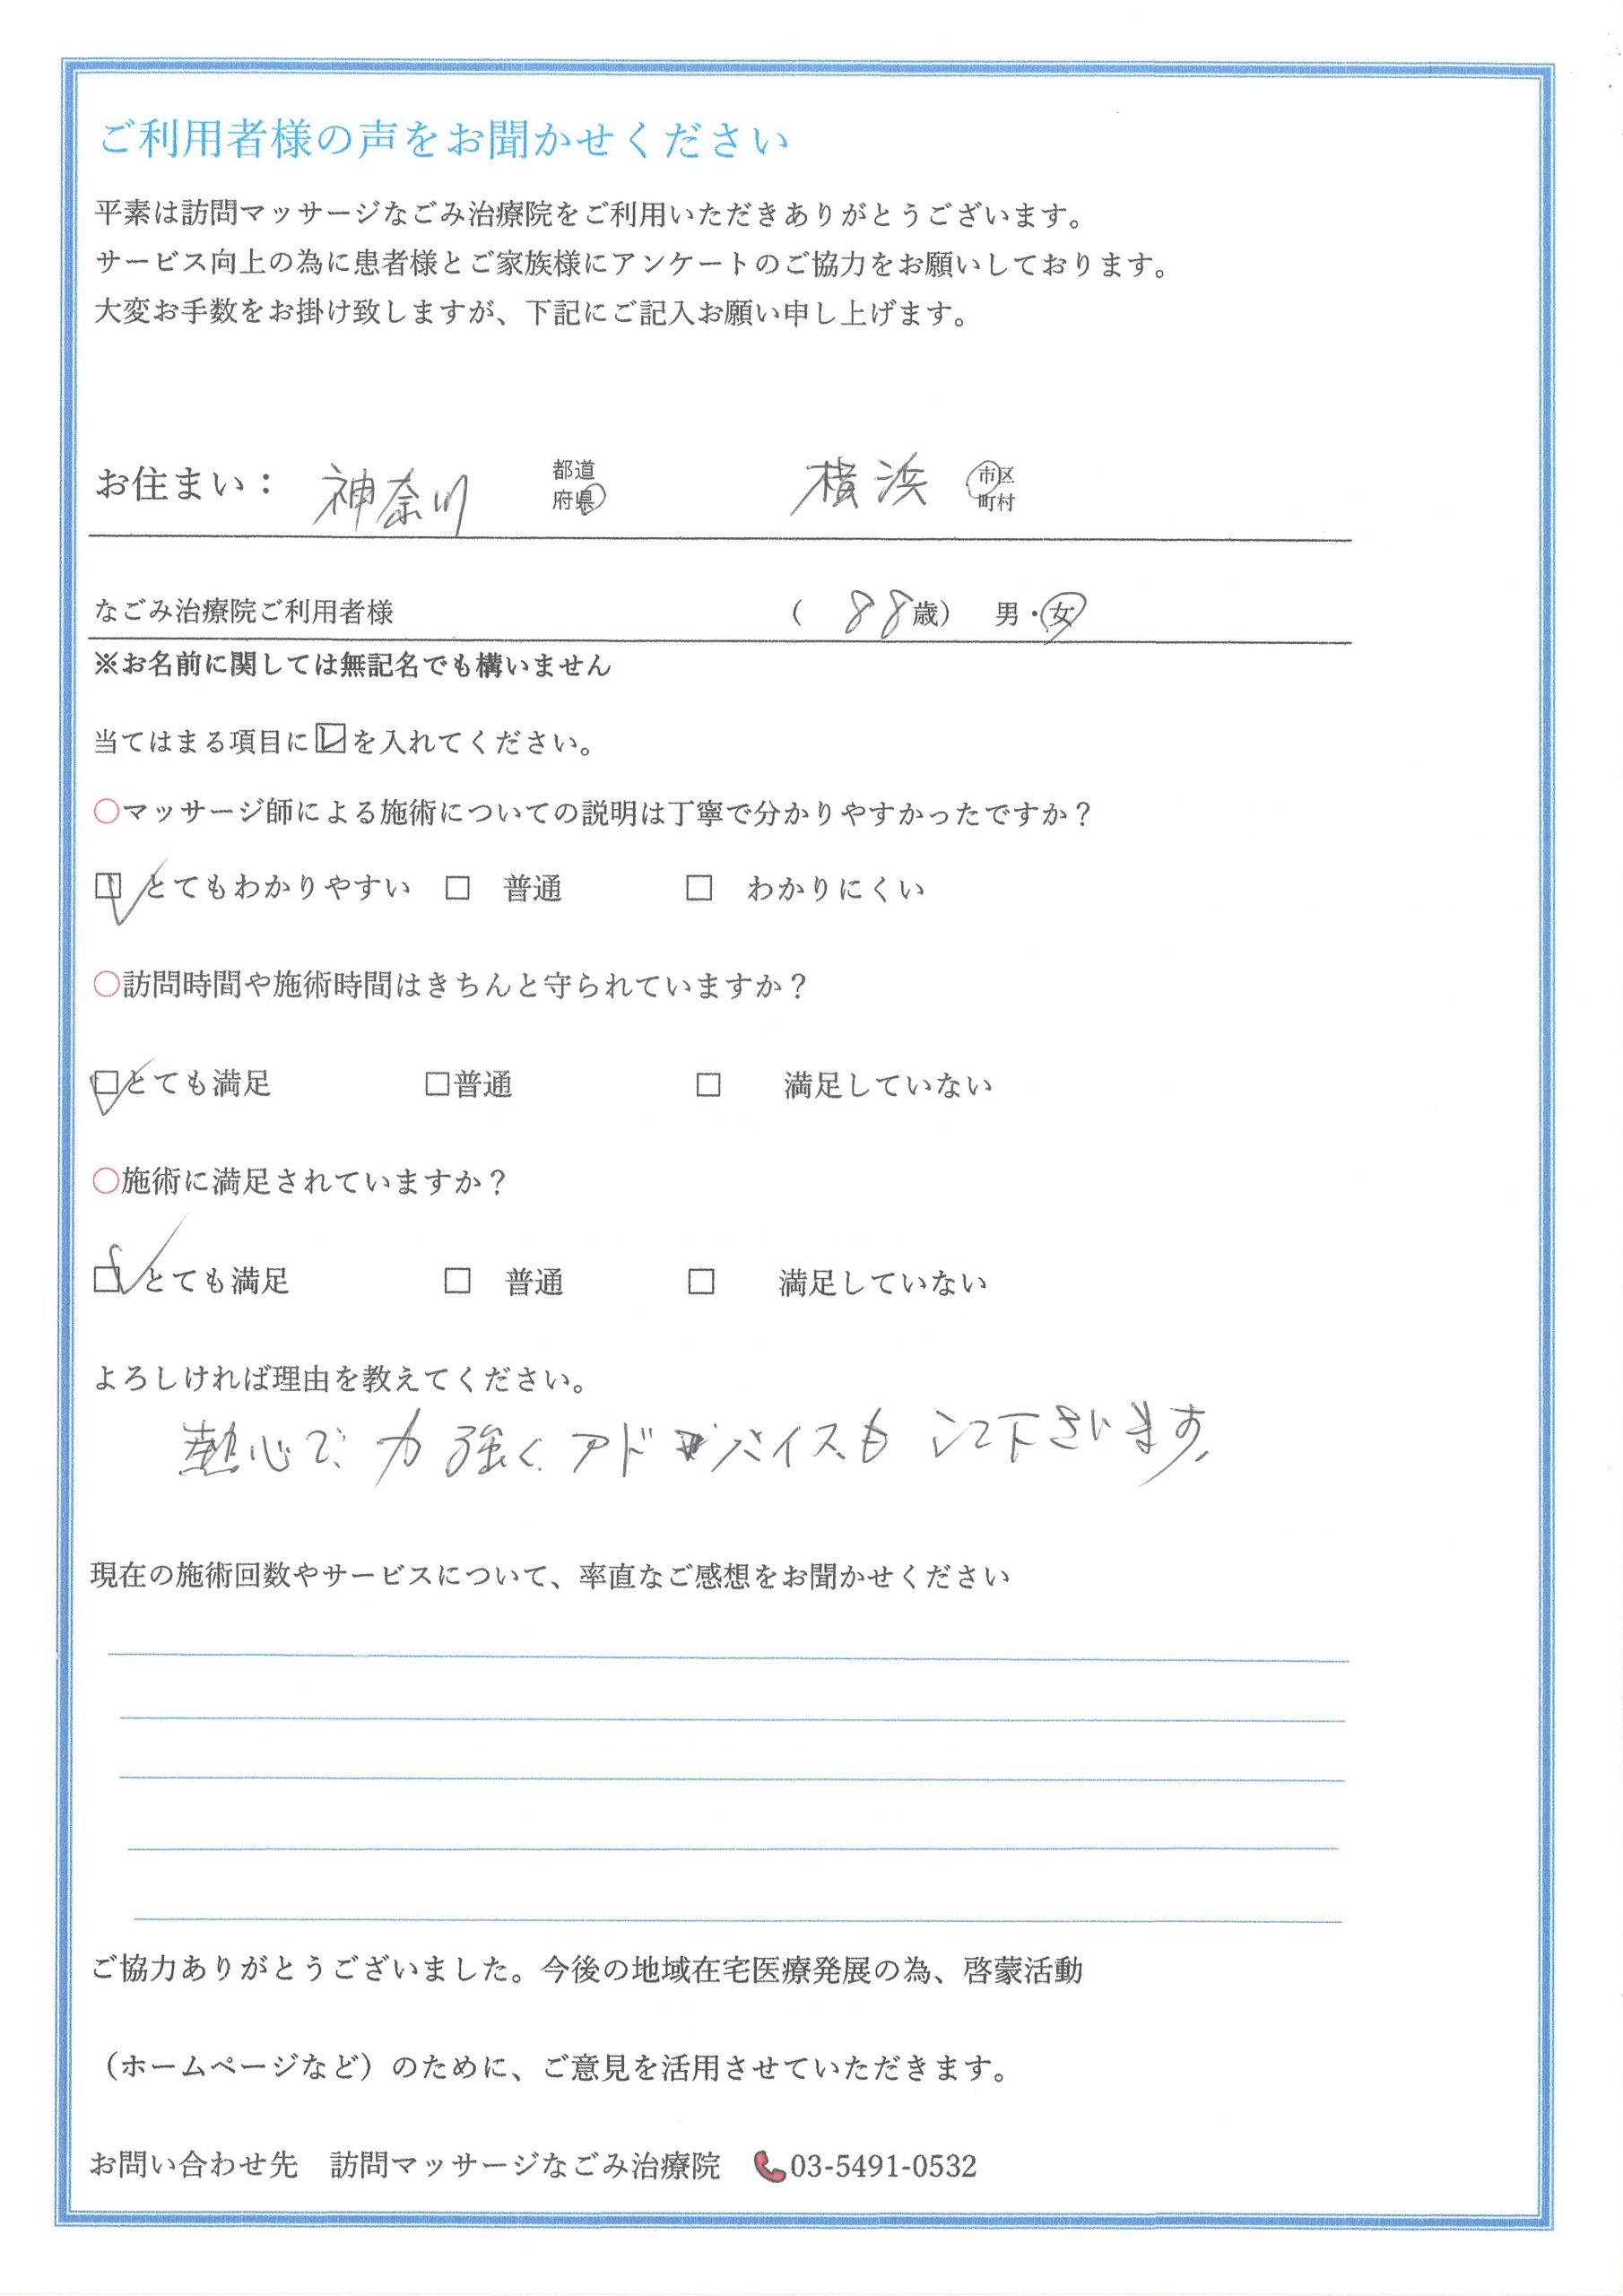 ご利用者様の声をお聞かせください
平素は訪問マッサージなごみ治療院をご利用いただきありがとうございます。
サービス向上の為に患者様とご家族様にアンケートのご協力をお願いしております。
大変お手数をお掛け致しますが、下記にご記入お願い申し上げます。
お住まい： 神奈川 都道府県 横浜 市区町村
なごみ治療院ご利用者様 （ 88歳） 男・女
※お名前に関しては無記名でも構いません
当てはまる項目に☑を入れてください。
○マッサージ師による施術についての説明は丁寧で分かりやすかったですか？
☑ とてもわかりやすい □ 普通 □ わかりにくい
○訪問時間や施術時間はきちんと守られていますか？
☑とても満足 □普通 □ 満足していない
○施術に満足されていますか？
☑ とても満足 □ 普通 □ 満足していない
よろしければ理由を教えてください。
熱心で力強くアドバイスもして下さいます。
現在の施術回数やサービスについて、率直なご感想をお聞かせください
ご協力ありがとうございました。今後の地域在宅医療発展の為、啓蒙活動
（ホームページなど）のために、ご意見を活用させていただきます。
お問い合わせ先 訪問マッサージなごみ治療院 📞03-5491-0532